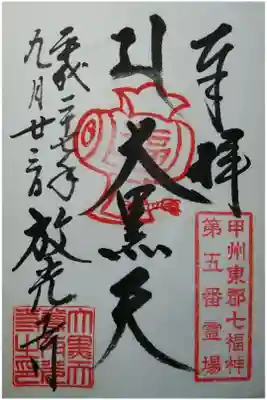 奉拝
甲州東郡七福神
第五番霊場
福
大黒天
平成二十七年
九月廿
放光寺